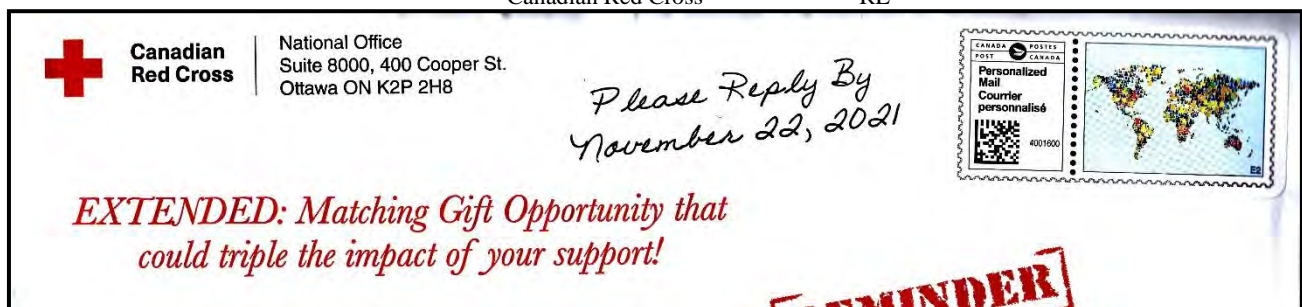 Canadian Red Cross RE
Canadian
Red Cross
National Office
Suite 8000, 400 Cooper St.
Ottawa ON K2P 2H8
Please Reply By
November 22, 2021
CANADA POSTES
POST CANADA
Personalized
Mail
Courrier
personnalisé
4001600
E2
EXTENDED: Matching Gift Opportunity that
could triple the impact of your support!
REMINDER